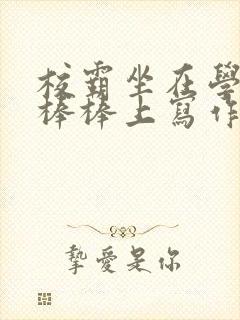 校霸坐在學
棒棒上寫作
摯愛是你